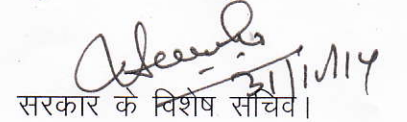 31/1/14
सरकार के विशेष सचिव।